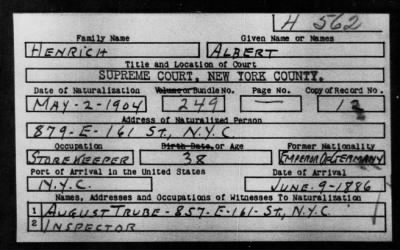 H 562
Family Name Given Name or Names
HENRICH ALBERT
Title and Location of Court
SUPREME COURT, NEW YORK COUNTY.
Date of Naturalization Volume or Bundle No. Page No. Copy of Record No.
MAY-2-1904 249 — 12
Address of Naturalized Person
879-E-161 ST., N.Y.C.
Occupation Birth Date or Age Former Nationality
STOREKEEPER 38 EMPEROR OF GERMANY
Port of Arrival in the United States Date of Arrival
N.Y.C. JUNE-9-1886
Names, Addresses and Occupations of Witnesses To Naturalization
1 AUGUST TRUBE-857-E-161-ST., N.Y.C.
2 INSPECTOR